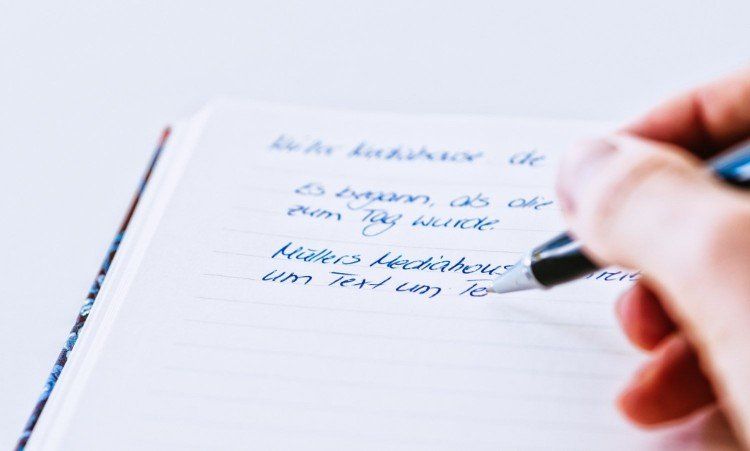 Mediahouse. de
Es begann, als die
zum Tag wurde.
Müllers Mediahous
um Text um Te